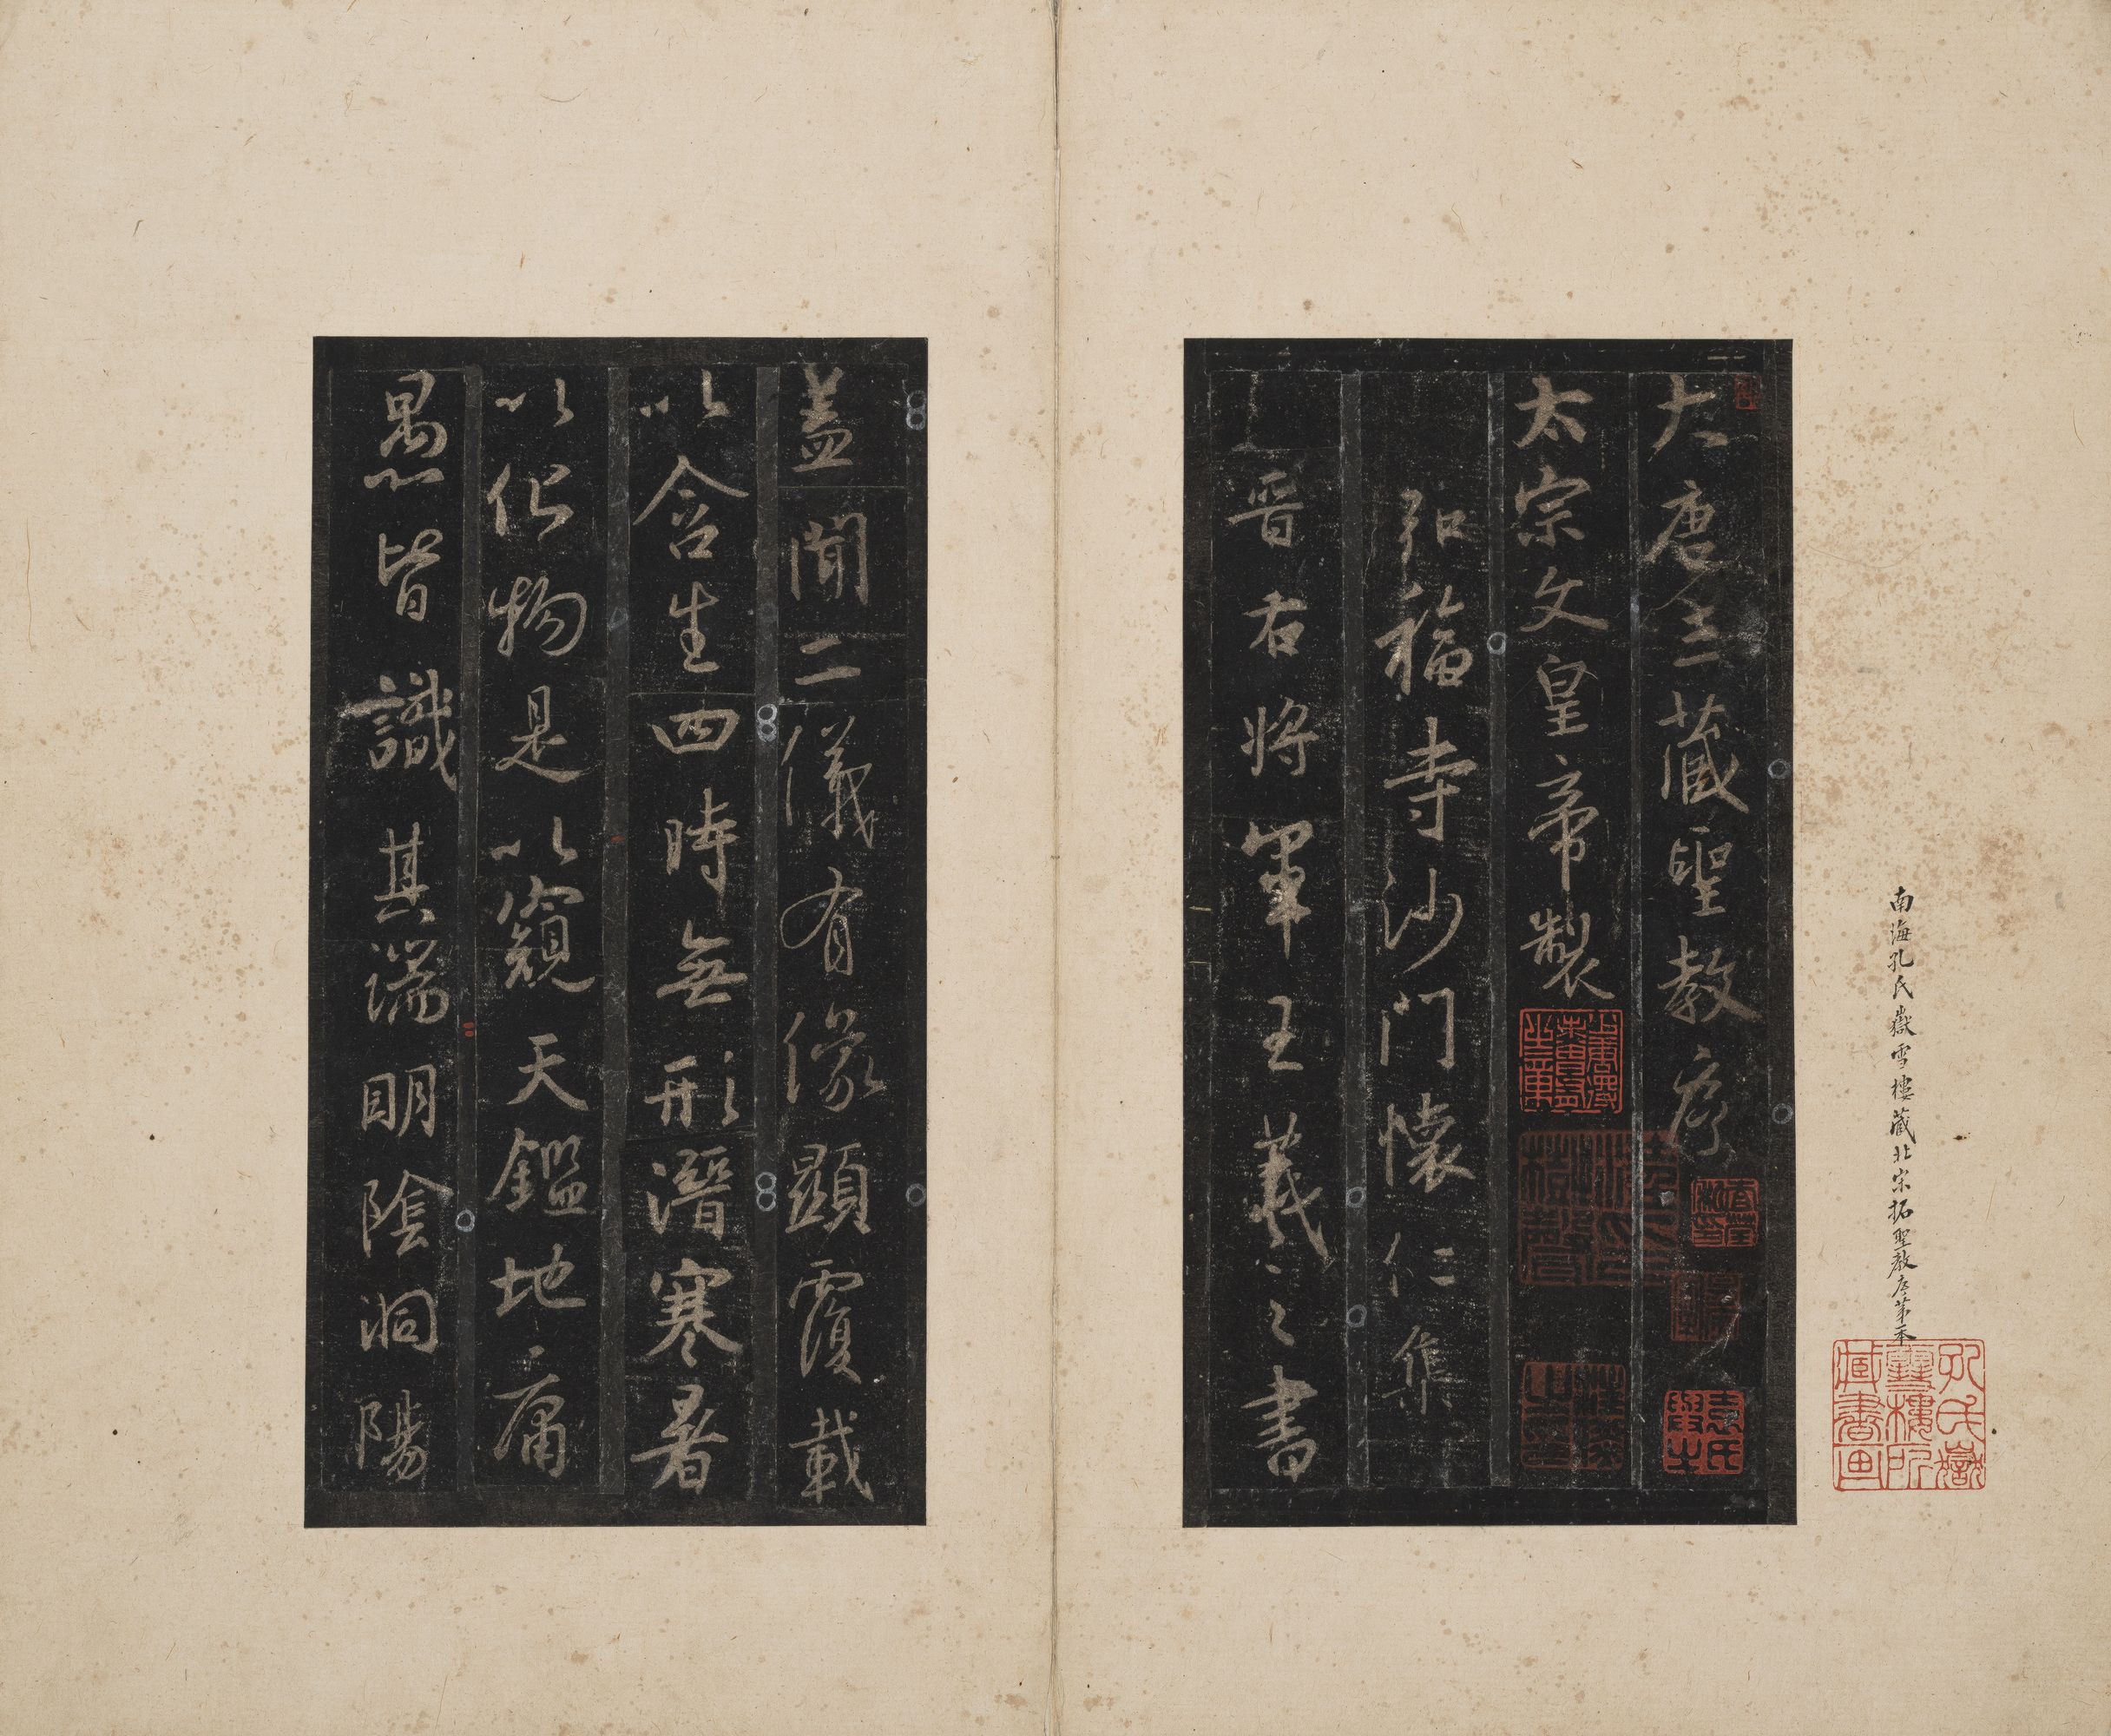 南海孔氏嶽雪樓藏北宋拓聖教序第一本
孔氏嶽
雪樓所
藏書画
大唐三藏聖教序
太宗文皇帝製
弘福寺沙門懷仁集
晉右將軍王羲之書
蓋聞二儀有像顯覆載
以含生四時無形潛寒暑
以化物是以窺天鑑地庸
愚皆識其端明陰洞陽